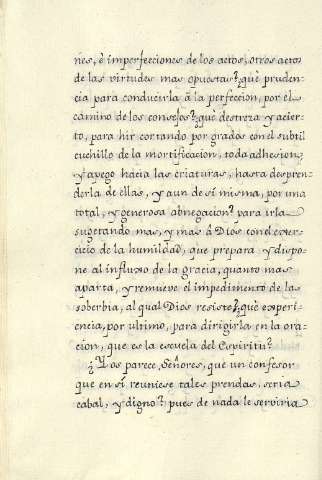 nes, è imperfecciones de los actos, otros actos
de las virtudes mas opuestas? què pruden-
cia para conducirla à la perfeccion, por el
camino de los consejos? què destreza y acier-
to, para hir cortando por grados con el subtil
cuchillo de la mortificacion, toda adhesion,
y apego hacia las criaturas, hasta despren-
derla de ellas, y aun de sí misma, por una
total, y generosa abnegacion? para irla
sugetando mas, y mas à Dios con el exer-
cicio de la humildad, que prepara y dispo-
ne al influxo de la gracia, quanto mas
aparta, y remueve el impedimento de la
soberbia, al qual Dios resiste? què experi-
encia, por ultimo, para dirigirla en la ora-
cion, que es la escuela del Espiritu?
¿Y os parece, Señores, que un confesor
que en sí reuniese tales prendas, seria
cabal, y digno? pues de nada le serviria